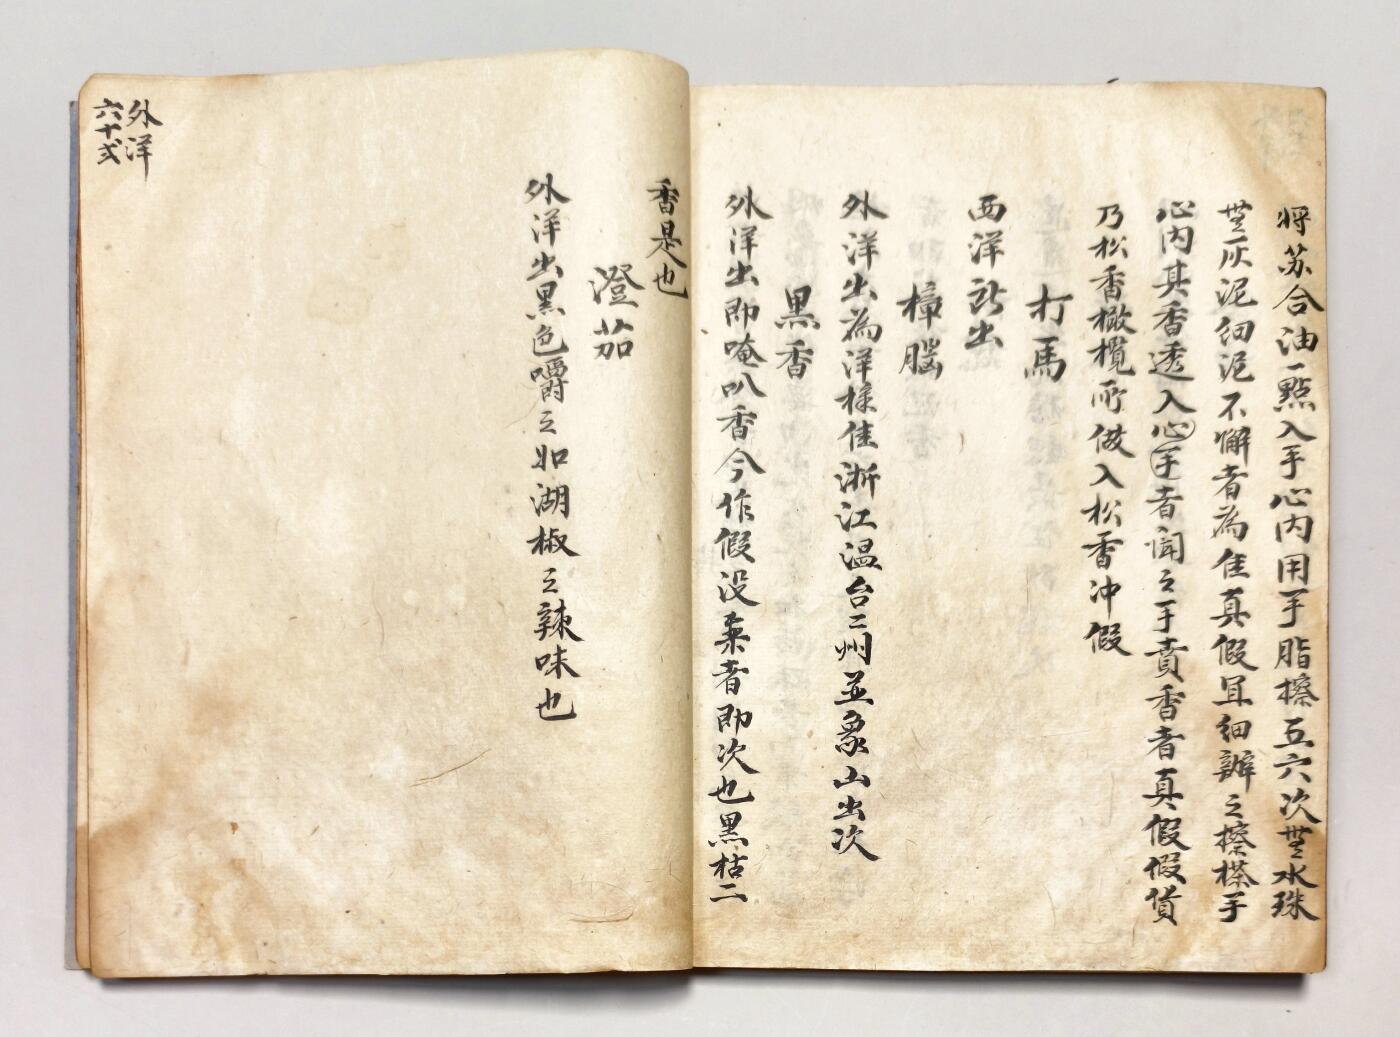 将苏合油一點入手心内用手脂擦五六次無水珠
無灰泥细泥不懈者為佳真假冝细辦之擦搽手
心内其香透入心手者闻之手賁香者真假假貨
乃松香橄榄所做入松香冲假
打馬
西洋所出
樟腦
外洋出為洋樣佳浙江温台二州並象山出次
黑香
外洋出即唵叭香今作假没薬者即次也黑枯二
香是也
澄茄
外洋出黑色嚼之如湖椒之辣味也
外洋
六十弍